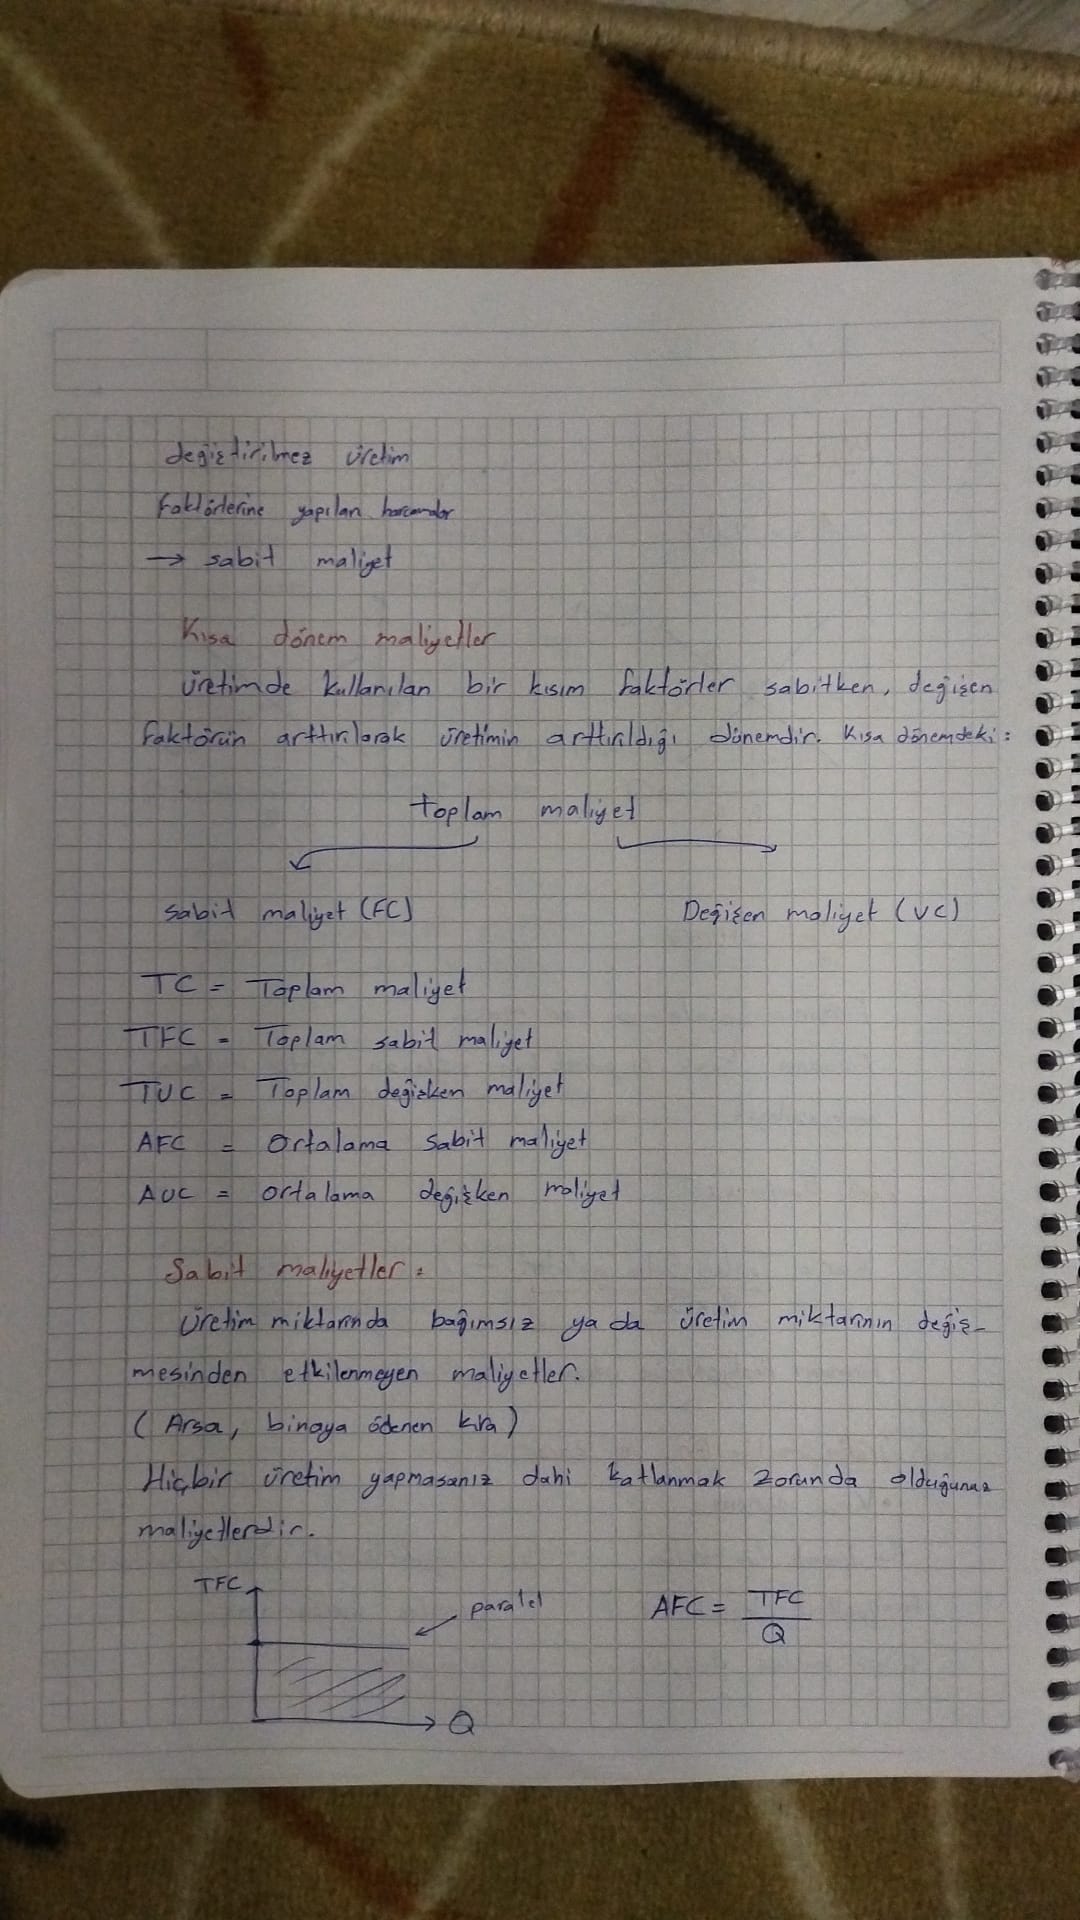 değiştirilmez üretim
faktörlerine yapılan harcamalar
→ sabit maliyet
Kısa dönem maliyetler
üretimde kullanılan bir kısım faktörler sabitken, değişen
faktörün arttırılarak üretimin arttırıldığı dönemdir. Kısa dönemdeki:
Toplam maliyet
Sabit maliyet (FC)
Değişen maliyet (VC)
TC = Toplam maliyet
TFC = Toplam sabit maliyet
TVC = Toplam değişken maliyet
AFC = Ortalama sabit maliyet
AVC = ortalama değişken maliyet
Sabit maliyetler:
Üretim miktarında bağımsız ya da üretim miktarının değiş-
mesinden etkilenmeyen maliyetler.
(Arsa, binaya ödenen kira)
Hiçbir üretim yapmasanız dahi katlanmak zorunda olduğunuz
maliyetlerdir.
TFC
paralel
AFC = TFC / Q
Q